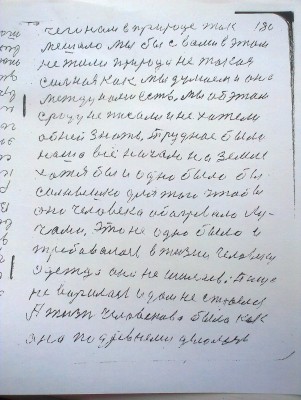 чегинам в природе так 180
мешало мы бы с вами в этом
не жили природа не такая
сильная как мы думаем и она
между нами есть. мы об этом
сроду не писали и не хотели
об ней знать, Трудное было
наше всё начало на земле
хотя бы и одно было бы
солнышко для того чтобы
оно человека обогревало лу-
чами, Это не одно было и
требовалося в жизни человеку
Одежда она не шилася, Пища
не варилася и дом не строился
А жизнь человекова была как
она по древнему